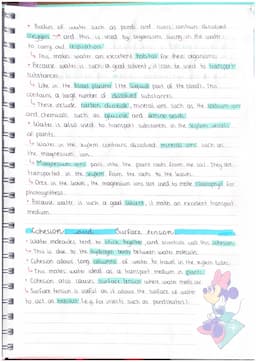 • Bodies of water such as ponds and rivers contain dissolved
oxygen → and this is used by organisms living in the water
to carry out respiration.
↳ This makes water an excellent habitat for these organisms.
• Because water is such a good solvent, it can be used to transport
substances.
↳ Like in the blood plasma (the liquid part of the blood). This
contains a large number of dissolved substances.
↳ These include carbon dioxide, mineral ions such as the sodium ion
and chemicals such as glucose and amino acids.
• Water is also used to transport substances in the xylem vessels
of plants.
↳ Water in the xylem contains dissolved mineral ions such as
the magnesium ion.
↳ Magnesium ions pass into the plant roots from the soil. They are
transported in the xylem from the roots to the leaves.
↳ Once in the leaves, the magnesium ions are used to make chlorophyll for
photosynthesis.
• Because water is such a good solvent, it makes an excellent transport
medium.
Cohesion and Surface tension
• Water molecules tend to stick together and scientists call this cohesion.
↳ This is due to the hydrogen bonds between water molecules.
• Cohesion allows long columns of water to travel in the xylem tubes.
↳ This makes water ideal as a transport medium in plants.
• Cohesion also causes surface tension where water meets air
• Surface tension is useful as it allows the surface of water
to act as habitat (e.g. for insects such as pondskaters).